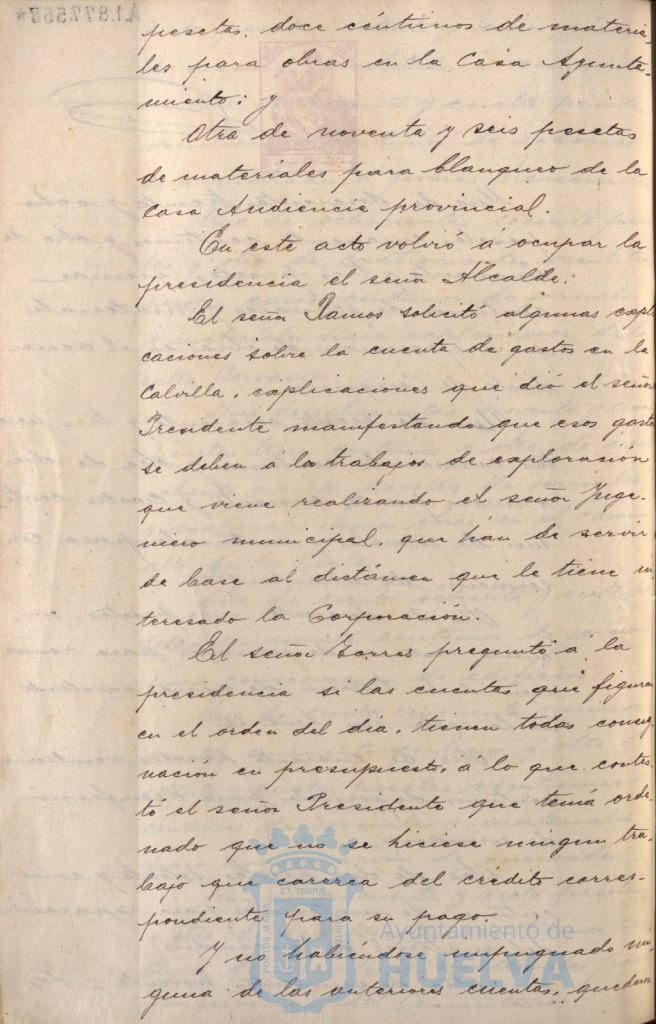 pesetas, doce céntimos de materia-
les para obras en la Casa Ayunta-
miento; y
Otra de noventa y seis pesetas
de materiales para blanqueo de la
Casa Audiencia provincial.
En este acto volvió á ocupar la
presidencia el señor Alcalde.
El señor Ramos solicitó algunas expli
caciones sobre la cuenta de gastos en la
Calvilla, explicaciones que dió el señor
Presidente manifestando que esos gastos
se deben á los trabajos de exploración
que viene realizando el señor Inge-
niero municipal, que han de servir
de base al distámen que le tiene in
teresado la Corporación.
El señor preguntó á la
presidencia si las cuentas que figuran
en el orden del dia, tienen todas consig-
nación en presupuesto, á lo que contes
tó el señor Presidente que tenía orde-
nado que no se hiciese ningun tra-
bajo que carezca del crédito corres-
pondiente para su pago.
Y no habiéndose impugnado nin-
guna de las anteriores cuentas, quedaron
Ayuntamiento de
HUELVA